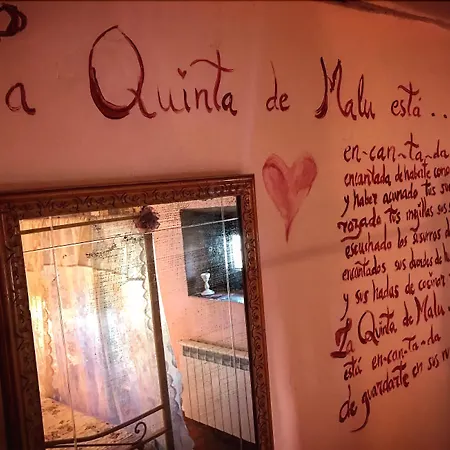 a Quinta de Malu está...
en-can-ta-da
encantada de haberte cono
y haber acunado tus su
rozado tus mejillas sus s
escuchado los susurros d
encantados sus duendes de l
y sus hadas de
La Quinta de Malu
está en-can-ta-da
de guardarte en sus m